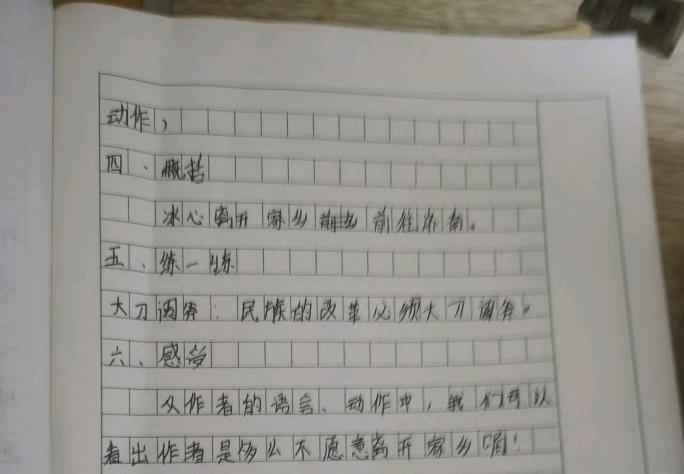 动作，
四、概括
冰心离开家乡前往济南。
五、练一练
大刀阔斧：民族的改革必须大刀阔斧。
六、感受
从作者的语言、动作中，我们可以
看出作者是多么不愿意离开家乡啊！